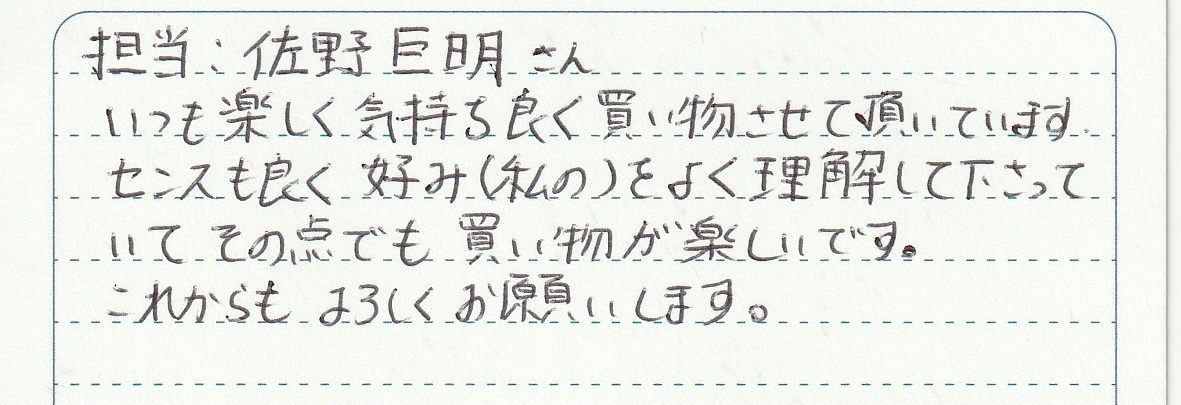 担当:佐野巨明さん
いつも楽しく気持ち良く買い物させて頂いています.
センスも良く好み(私の)をよく理解して下さって
いてその点でも買い物が楽しいです。
これからもよろしくお願いします。